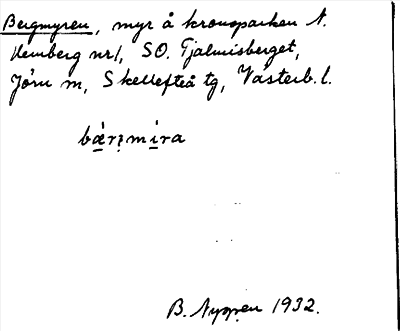 Bergmyren, myr å kronoparken N.
Hemberg nr 1, SO. Tjalmisberget,
Jörn sn, Skellefteå tg, Västerb. l.
bærmira
B. Nygren 1932.